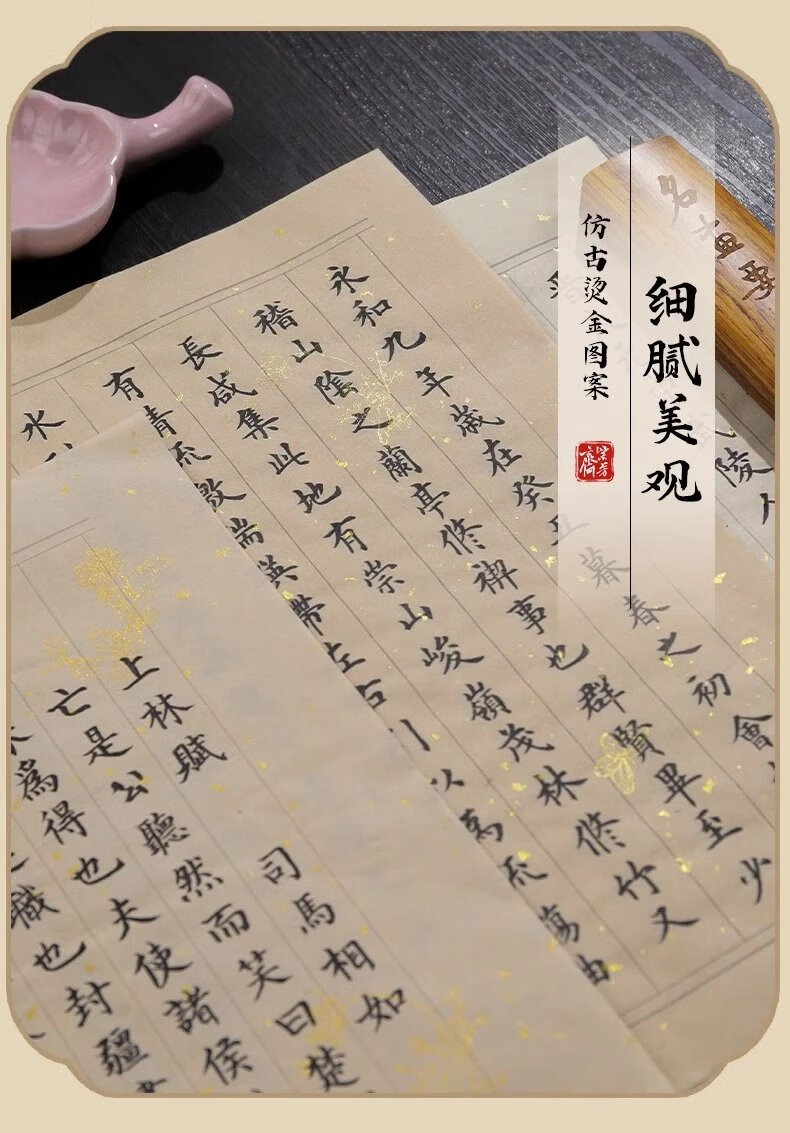 细腻美观
仿古烫金图案
陵人
永和九年歲在癸丑暮春之初會
稽山陰之蘭亭修禊事也群賢畢至少
長咸集此地有崇山峻嶺茂林修竹又
有清流激湍英帶左右引以為流觴曲
水
上林賦 司馬相如
亡是公聽然而笑曰楚
為得也夫使諸侯
職也封疆